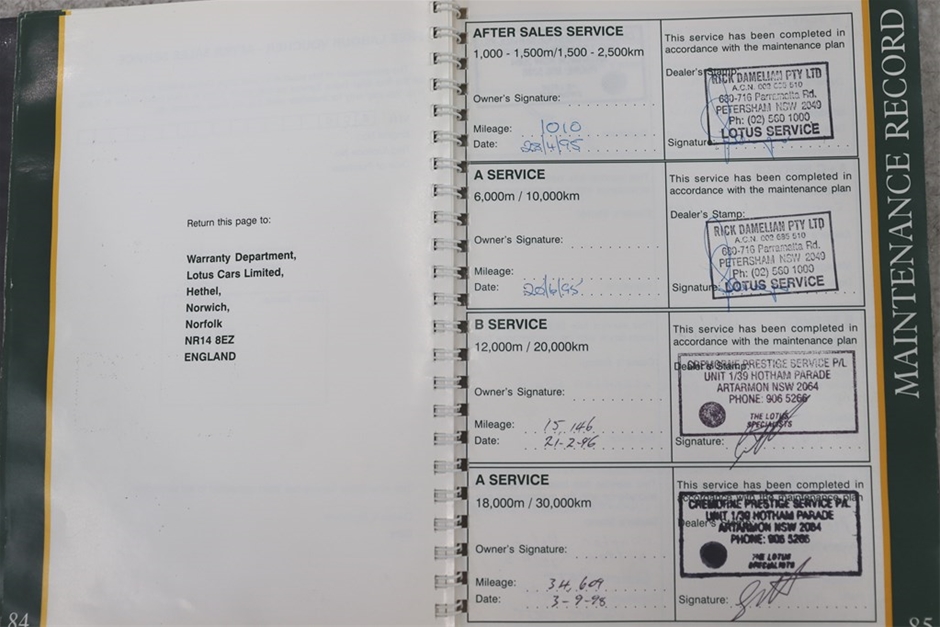 Return this page to:
Warranty Department,
Lotus Cars Limited,
Hethel,
Norwich,
Norfolk
NR14 8EZ
ENGLAND
84
AFTER SALES SERVICE
1,000 - 1,500m/1,500 - 2,500km
Owner's Signature:
Mileage: 1010
Date: 28/4/95
This service has been completed in
accordance with the maintenance plan
Dealer's Stamp:
RICK DAMELIAN PTY LTD
680-716 Parramatta Rd.
PETERSHAM NSW 2049
Ph: (02) 560 1000
LOTUS SERVICE
Signature:
A SERVICE
6,000m / 10,000km
Owner's Signature:
Mileage:
Date: 20/6/95
This service has been completed in
accordance with the maintenance plan
Dealer's Stamp:
RICK DAMELIAN PTY LTD
680-716 Parramatta Rd.
PETERSHAM NSW 2049
Ph: (02) 560 1000
LOTUS SERVICE
Signature:
B SERVICE
12,000m / 20,000km
Owner's Signature:
Mileage: 15,146
Date: 21-2-96
This service has been completed in
accordance with the maintenance plan
Dealer's Stamp:
CREMORNE PRESTIGE SERVICE P/L
UNIT 1/39 HOTHAM PARADE
ARTARMON NSW 2064
PHONE: 906 5266
THE LOTUS
SPECIALISTS
Signature:
A SERVICE
18,000m / 30,000km
Owner's Signature:
Mileage: 34,609
Date: 3-9-98
This service has been completed in
accordance with the maintenance plan
Dealer's
CREMORNE PRESTIGE SERVICE P/L
UNIT 1/39 HOTHAM PARADE
ARTARMON NSW 2064
PHONE: 906 5266
THE LOTUS
SPECIALISTS
Signature:
MAINTENANCE RECORD
85